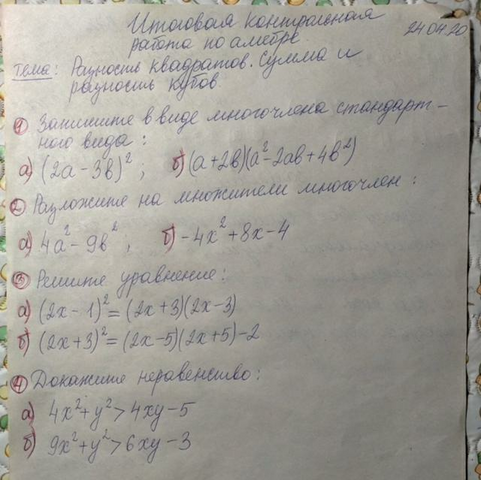 Итоговая контрольная
работа по алгебре
24.04.20
Тема: Разность квадратов. Сумма и
разность кубов.
1 Запишите в виде многочлена стандарт-
ного вида:
а) (2a - 3b)²; б) (a+2b)(a²-2ab+4b²)
2 Разложите на множители многочлен:
а) 4a² - 9b², б) -4x²+8x-4
3 Решите уравнение:
а) (2x - 1)² = (2x+3)(2x-3)
б) (2x+3)² = (2x-5)(2x+5)-2
4 Докажите неравенство:
а) 4x²+y²>4xy-5
б) 9x²+y²>6xy-3